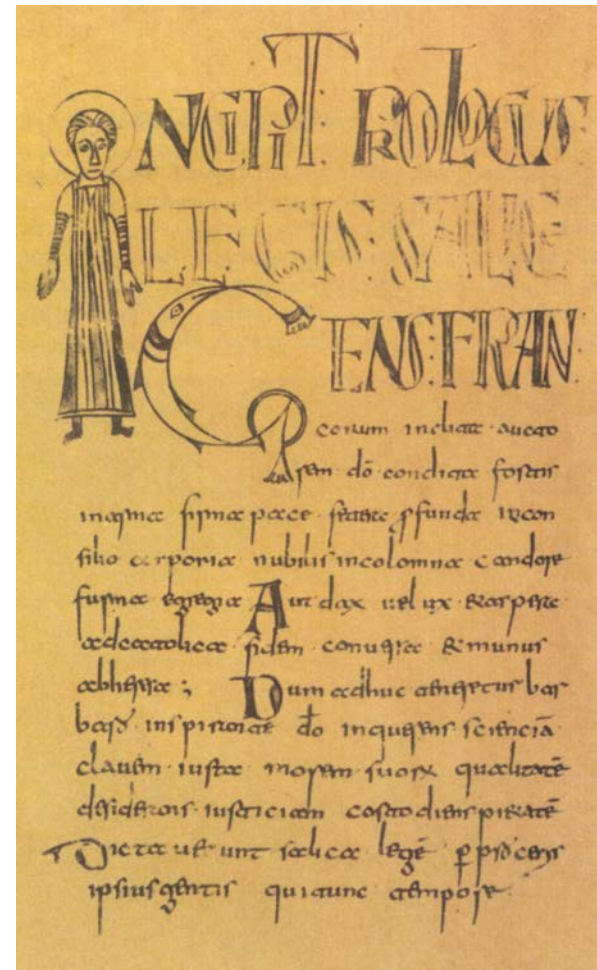 INCIPIT PROLOGUS
LEGIS SALICE
GENS FRAN
corum inclita aucto
rem dō condita fortis
in arma firma pace ꝓfunda in con
silio corporia nubilis incolomna candore
furma egregia Audax uelux & aspere
ad catolica fidem conuersa & munus
ab heresa ; Dum adhuc teneretur bar
bar inspirante dō inquerens scienciā
clauem iusta morem suorꝝ qualitatē
desiderans iusticiam costodiens pietatē
Dictauerunt salica legē ꝑ proceris
ipsius gentis qui tunc tempore